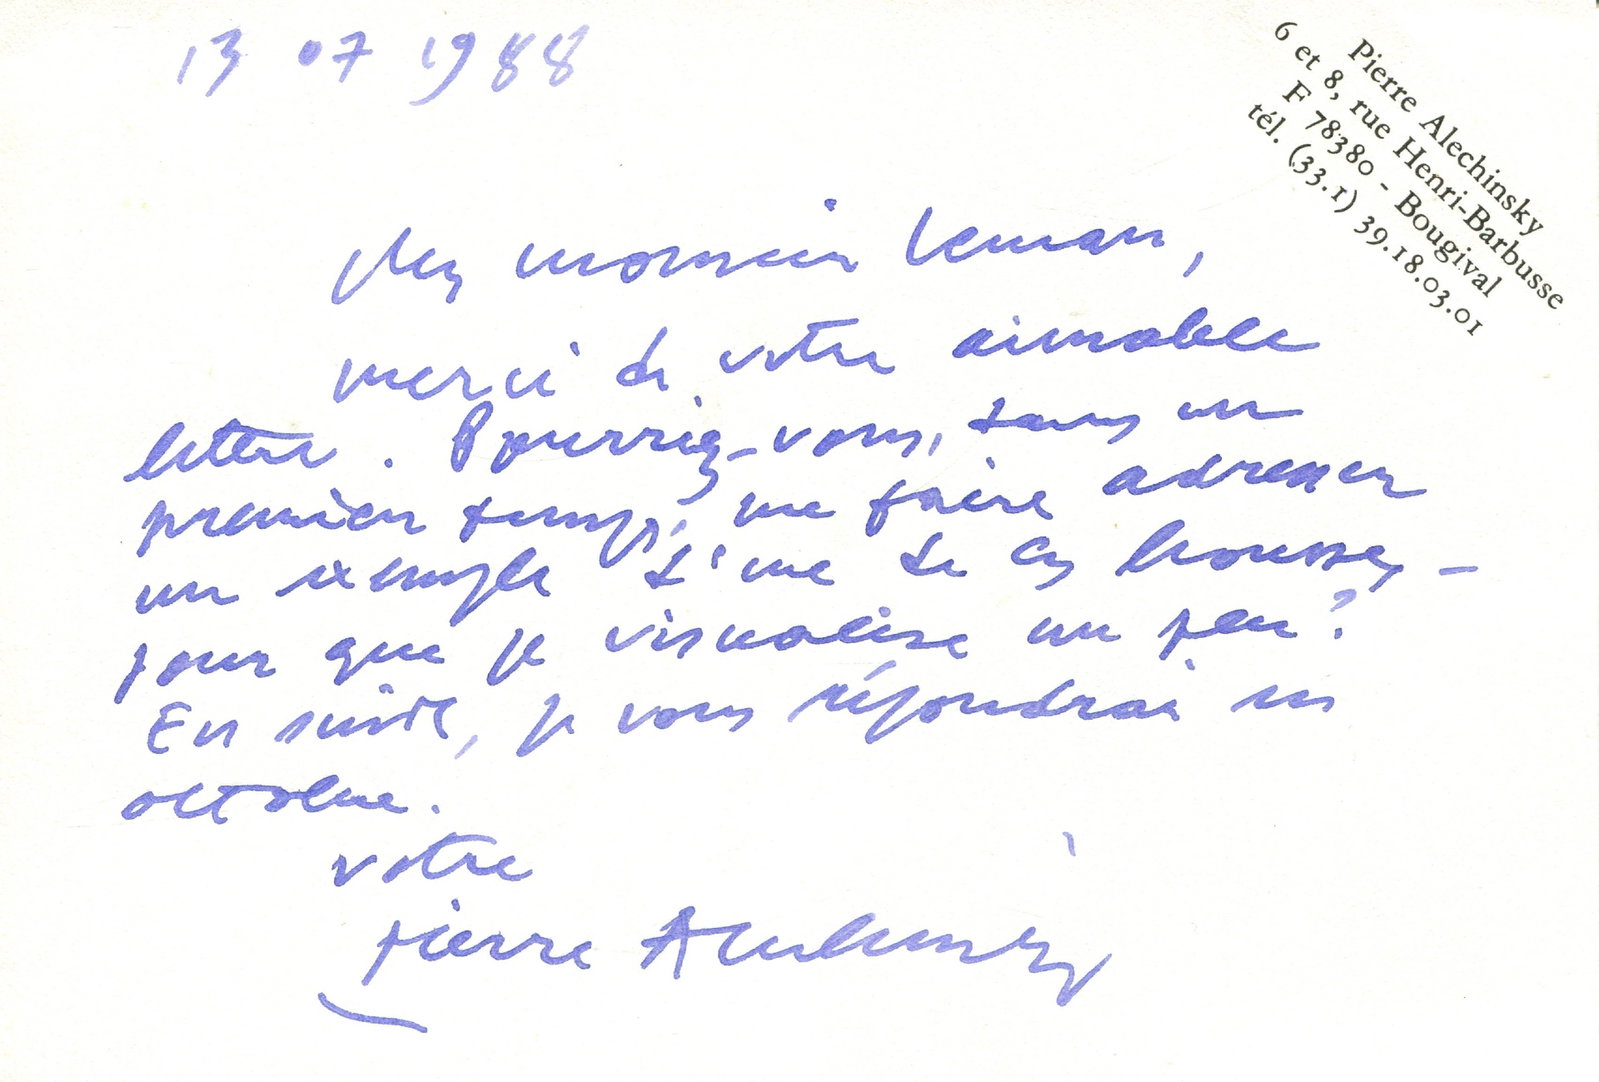 13 07 1988
Pierre Alechinsky
6 et 8, rue Henri-Barbusse
F 78380 - Bougival
tél. (33.1) 39.18.03.01
cher monsieur Leman,
merci de votre aimable
lettre. Pourriez-vous, dans un
premier temps, me faire adresser
un exemple d'une de ces housses –
pour que je visualise un peu ?
Ensuite, je vous répondrai en
octobre.
votre
Pierre Alechinsky